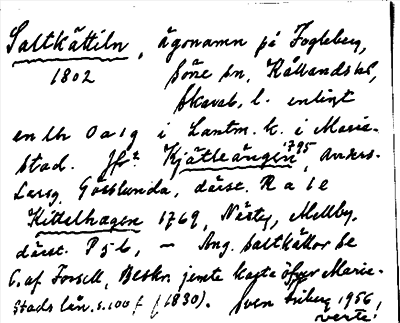 Saltkättiln, ägonamn på Fogleberg,
1802 Söne sn, Kållands hd,
Skarab. l. enligt
en lh Oa19 i Lantm. k. i Marie-
stad. Jfr Kjätleängen 1795, Anders-
Larsg. Götslunda, därst. R a 1 e
Kittelhagen 1769, Mellby,
därst. P 5-6, — Ang. saltkällor se
C. af Forsell, Beskr. jemte karta öfver Marie-
stads län. s. 100 f (1830). Sven 1956,
verte!